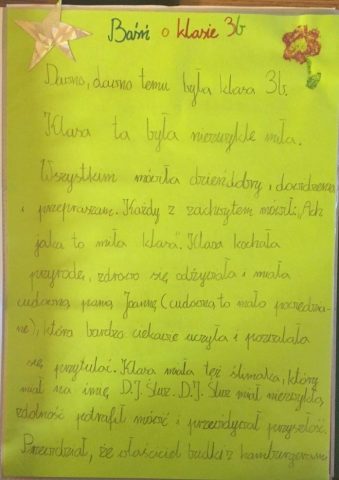 Baśń o klasie 3b
Dawno, dawno temu była klasa 3b.
Klasa ta była niezwykle miła.
Wszystkim mówiła dzień dobry, i dowidzenia
i przepraszam. Każdy z zachwytem mówił: „Ach
jaka to miła klasa”. Klasa kochała
przyrodę, zdrowo się odżywiała i miała
cudowną panią Joannę (cudowną to mało powiedzia-
ne), która bardzo ciekawie uczyła i pozwalała
się przytulać. Klasa miała też ślimaka, który
miał na imię D.J. Śluz. D.J. Śluz miał niezwykłą
zdolność potrafił mówić i przewidywał przyszłość.
Przewidział, że właściciel budki z hamburgerami